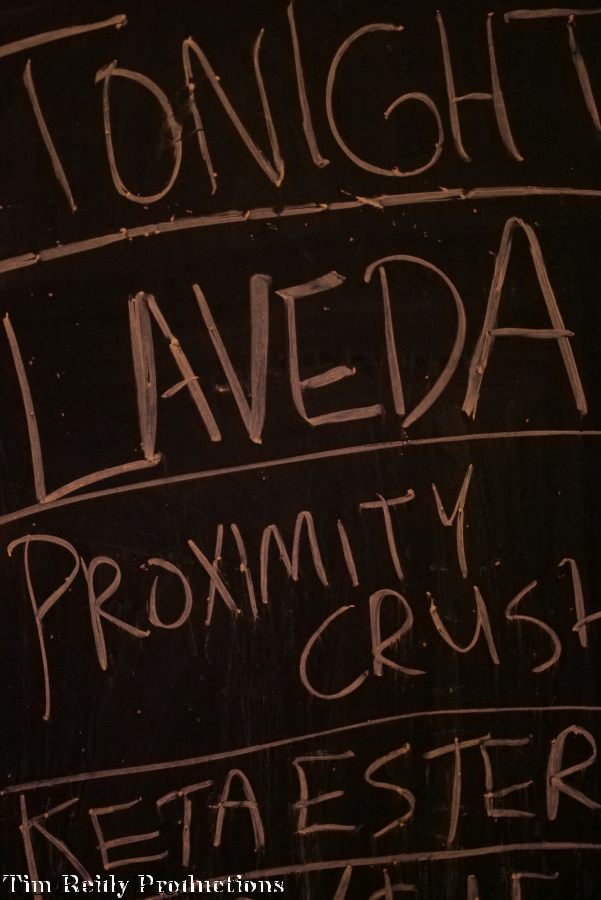 TONIGHT
LAVEDA
PROXIMITY
CRUSH
KETA ESTER
Tim Reidy Productions